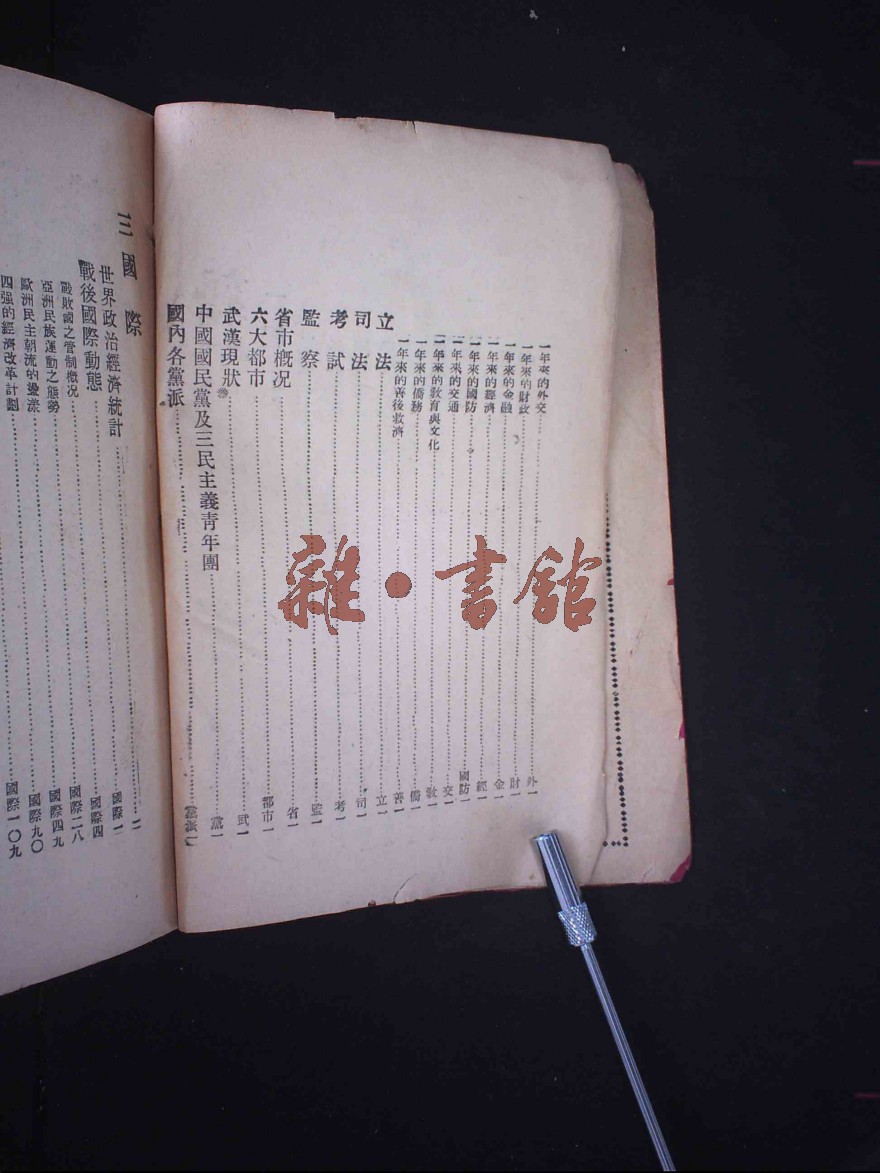 一年來的外交……外一
一年來的財政……財一
一年來的金融……金一
一年來的經濟……經一
一年來的國防……國防一
一年來的交通……交一
一年來的教育與文化……教一
一年來的僑務……僑一
一年來的善後救濟……善一
立法……立一
司法……司一
考試……考一
監察……監一
省市概況……省一
六大都市……都市一
武漢現狀……武一
中國國民黨及三民主義青年團……黨一
國內各黨派……黨派一
三國際
世界政治經濟統計……國際一
戰後國際動態……國際四
戰敗國之管制概况……國際二八
亞洲民族運動之態勢……國際四九
歐洲民主朝流的盪漾……國際九〇
四强的經濟改革計劃……國際一〇九
雜·書館